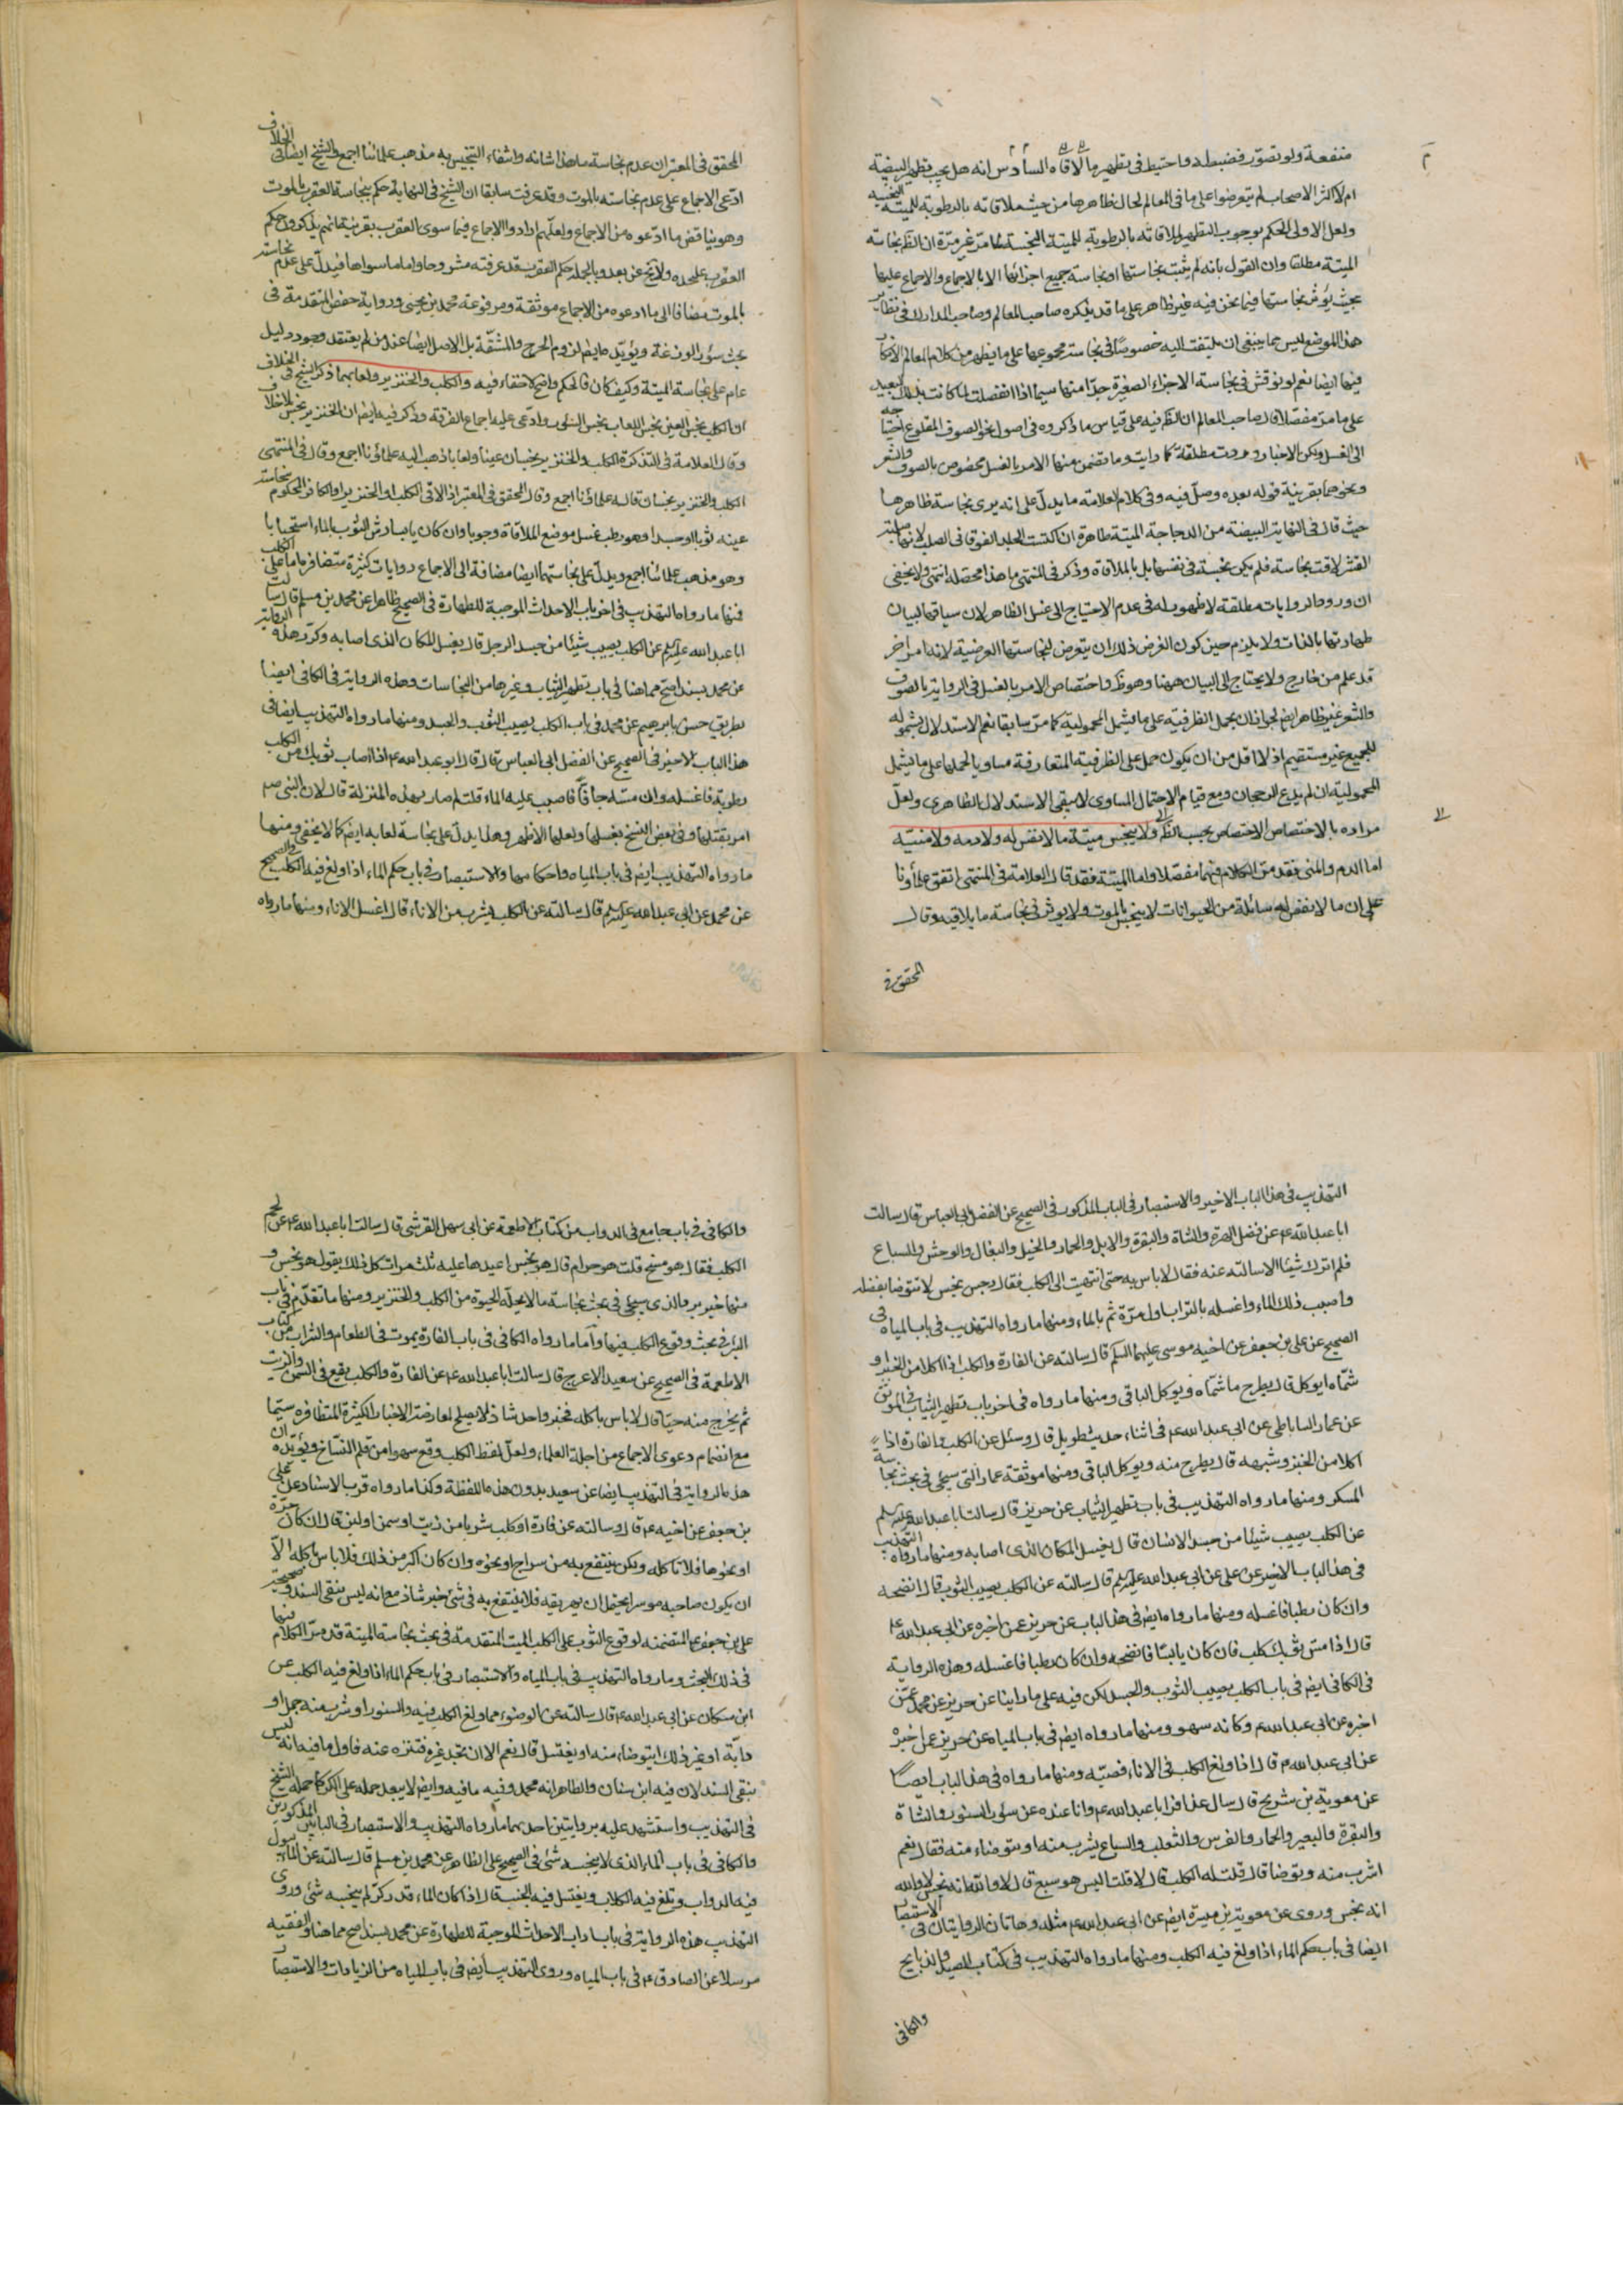 منفعة ولو تصور فضبطه واحتيط فى تطهير ما لاقاه السادس انه هل يجب تطهير البيضة
ام لا اكثر الاصحاب لم يتعرضوا على ما فى المعالم لحال ظاهرها من حيث ملاقاته بالرطوبة للميتة النجسة
ولعل الاولى الحكم بوجوب التطهير لملاقاته بالرطوبة للميتة النجسة كما مر غير مرة ان الظ نجاسة
الميتة مطلقا وان القول بانه لم يثبت نجاستها او نجاسة جميع اجزائها الا بالاجماع والاجماع عليها
بحيث يؤثر نجاستها فيما نحن فيه غير ظاهر على ما قد يذكره صاحب المعالم وصاحب المدارك فى نظاير
هذا الموضع ليس مما ينبغى ان يلتفت اليه خصوصا فى نجاسة مجموعها على ما يظهر من كلام المعالم الانكار
فيها ايضا نعم لو نوقش فى نجاسة الاجزاء الصغيرة جدا منها سيما اذا انفصلت لما كانت بذلك البعيد
على ما مر مفصلا قال صاحب المعالم ان النظر فيه على قياس ما ذكروه فى اصول نحو الصوف المقلوع احتياجه
الى الغسل ولكن الاخبار وردت مطلقة كما رايت وما تضمن منها الامر بالغسل مخصوص بالصوف والشعر
ونحوهما بقرينة قوله بعده وصل فيه وفى كلام العلامة ما يدل على انه يرى نجاسة ظاهرها
حيث قال فى النهاية البيضة من الدجاجة الميتة طاهرة ان اكتست الجلد الفوقانى الصلب لانها صلبة
القشر لاقت نجاسة فلم يكن نجسة فى نفسها بل بالملاقاة وذكر فى المنتهى ما هذا محصله انتهى ولا يخفى
ان ورود الروايات مطلقة لا ظهور له فى عدم الاحتياج الى غسل الظاهر لان سياقها لبيان
طهارتها بالذات ولا يلزم حين كون الغرض ذلك ان يتعرض لنجاستها العرضية لانه امر اخر
قد علم من خارج ولا يحتاج الى البيان ههنا وهو ظ واختصاص الامر بالغسل فى الرواية بالصوف
والشعر غير ظاهر ايضا لجواز ان يحمل الظرفية على ما يشمل المحمولية كما مر سابقا نعم الاستدلال بشموله
للجميع غير مستقيم اذ لا اقل من ان يكون حمل على الظرفية المتعارفة مساويا لحملها على ما يشمل
المحمولية ان لم يدع الرجحان ومع قيام الاحتمال المساوى لا يبقى الاستدلال الظاهرى ولعل
مراده بالاختصاص الاختصاص بحسب الظ ولا ينجس ميتة ما لا نفس له ولا دمه ولا منيته
اما الدم والمنى فقد مر الكلام فيهما مفصلا واما الميتة فقد قال العلامة فى المنتهى اتفق علماؤنا
على ان ما لا نفس له سائلة من الحيوانات لا ينجس بالموت ولا يوثر فى نجاسة ما يلاقيه وقال
المحقق فى
المحقق فى المعتبر ان عدم نجاسة ما هذا شانه وانتفاء التنجيس به مذهب علمائنا اجمع والشيخ ايضا فى الخلاف
ادعى الاجماع على عدم نجاسته بالموت وقد عرفت سابقا ان الشيخ فى النهاية حكم بنجاسة العقرب بالموت
وهو يناقض ما ادعوه من الاجماع ولعلهم ارادوا الاجماع فيما سوى العقرب بقرينة انهم يذكرون حكم
العقرب عليحده ولا يخ عن بعد وبالجملة حكم العقرب قد عرفته مشروحا واما ما سواها فيدل على عدم نجاسته
بالموت مضافا الى ما ادعوه من الاجماع موثقة ومرفوعة محمد بن يحيى ورواية حفص المتقدمة فى
بحث سؤر الوزغة ويؤيده ايضا لزوم الحرج والمشقة بل الاصل ايضا عند من لم يعتقد وجود دليل
عام على نجاسة الميتة وكيف كان فالحكم واضح لا خفاء فيه والكلب والخنزير ولعابهما ذكر الشيخ فى الخلاف
ان الكلب نجس العين نجس اللعاب نجس السؤر وادعى عليه اجماع الفرقة وذكر فيه ايضا ان الخنزير نجس بلا خلاف
وقال العلامة فى التذكرة الكلب والخنزير نجسان عينا ولعابا ذهب اليه علماؤنا اجمع وقال فى المنتهى
الكلب والخنزير نجسان قاله علماؤنا اجمع وقال المحقق فى المعتبر اذا لاقى الكلب او الخنزير او الكافر المحكوم نجاسة
عينه ثوبا او جسدا وهو رطب غسل موضع الملاقاة وجوبا وان كان يابسا رش الثوب بالماء استحبابا
وهو مذهب علمائنا اجمع ويدل على نجاستهما ايضا مضافة الى الاجماع روايات كثيرة متضافرة اما على الكلب
فمنها ما رواه التهذيب فى اخر باب الاحداث الموجبة للطهارة فى الصحيح ظاهرا عن محمد بن مسلم قال سالت
ابا عبد الله عليه السلم عن الكلب يصيب شيئا من جسد الرجل قال يغسل المكان الذى اصابه وكرر هذه الرواية
عن محمد بسند اصح مما هنا فى باب تطهير الثياب وغيرها من النجاسات وهذه الرواية فى الكافى ايضا
بطريق حسن بابرهيم عن محمد فى باب الكلب يصيب الثوب والجسد ومنها ما رواه التهذيب ايضا فى
هذا الباب الاخير فى الصحيح عن الفضل ابى العباس قال قال ابو عبد الله ع اذا اصاب ثوبك من الكلب
رطوبة فاغسله وان مسه جافا فاصبب عليه الماء قلت لم صار بهذه المنزلة قال لان النبى صم
امر بقتلها وفى بعض النسخ بغسلها ولعلها الاظهر وهذا يدل على نجاسة لعابه ايضا كما لا يخفى ومنها
ما رواه التهذيب ايضا فى باب المياه واحكامها والاستبصار فى باب حكم الماء اذا ولغ فيه الكلب فى الصحيح
عن محمد عن ابى عبد الله عليه السلم قال سالته عن الكلب يشرب من الاناء قال اغسل الاناء ومنها ما رواه
التهذيب فى هذا الباب الاخير والاستبصار فى الباب المذكور فى الصحيح عن الفضل ابى العباس قال سالت
ابا عبد الله ع عن فضل الهرة والشاة والبقرة والابل والحمار والخيل والبغال والوحش والسباع
فلم اترك شيئا الا سالته عنه فقال لا باس به حتى انتهيت الى الكلب فقال رجس نجس لا تتوضا بفضله
واصبب ذلك الماء واغسله بالتراب اول مرة ثم بالماء ومنها ما رواه التهذيب فى باب المياه فى
الصحيح عن على بن جعفر عن اخيه موسى عليهما السلم قال سالته عن الفارة والكلب اذا اكلا من الخبز او
شماه ايوكل قال يطرح ما شماه ويوكل الباقى ومنها ما رواه فى اخر باب تطهير الثياب فى الموثق
عن عمار الساباطى عن ابى عبد الله ع فى اثناء حديث طويل قال وسئل عن الكلب والفارة اذا
اكلا من الخبز وشبهه قال يطرح منه ويوكل الباقى ومنها موثقة عمار التى سيجئ فى بحث نجاسة
المسكر ومنها ما رواه التهذيب فى باب تطهير الثياب عن حريز قال سالت ابا عبد الله عليه السلم
عن الكلب يصيب شيئا من جسد الانسان قال يغسل المكان الذى اصابه ومنها ما رواه التهذيب
فى هذا الباب الاخير عن على عن ابى عبد الله عليه السلم قال سالته عن الكلب يصيب الثوب قال انضحه
وان كان رطبا فاغسله ومنها ما رواه ايضا فى هذا الباب عن حريز عمن اخبره عن ابى عبد الله ع
قال اذا مس ثوبك كلب فان كان يابسا فانضحه وان كان رطبا فاغسله وهذه الرواية
فى الكافى ايضا فى باب الكلب يصيب الثوب والجسد لكن فيه على ما راينا عن حريز عن محمد عمن
اخبره عن ابى عبد الله ع وكانه سهو ومنها ما رواه ايضا فى باب المياه عن حريز عمن اخبره
عن ابى عبد الله ع قال اذا ولغ الكلب فى الاناء فصبه ومنها ما رواه فى هذا الباب ايضا
عن معوية بن شريح قال سال عذافر ابا عبد الله ع وانا عنده عن سؤر السنور والشاة
والبقرة والبعير والحمار والفرس والثعلب والسباع يشرب منه او يتوضاء منه فقال نعم
اشرب منه وتوضا قال قلت له الكلب قال لا قلت اليس هو سبع قال لا والله انه نجس لا والله
انه نجس وروى عن معوية بن ميسرة ايضا عن ابى عبد الله ع مثله وهاتان الروايتان فى الاستبصار
ايضا فى باب حكم الماء اذا ولغ فيه الكلب ومنها ما رواه التهذيب فى كتاب الصيد والذبايح
والكافى
والكافى فى باب جامع فى الدواب من كتاب الاطعمة عن ابى سهل القرشى قال سالت ابا عبد الله ع عن لحم
الكلب فقال هو مسخ قلت هو حرام قال هو نجس اعيدها عليه ثلث مرات كل ذلك يقول هو نجس و
منها خبر والذى سيجئ فى بحث نجاسة ما لا يحله الحيوة من الكلب والخنزير ومنها ما تقدم فى باب
البئر فى بحث وقوع الكلب فيها واما ما رواه الكافى فى باب الفارة يموت فى الطعام والشراب من كتاب
الاطعمة فى الصحيح عن سعيد الاعرج قال سالت ابا عبد الله ع عن الفارة والكلب يقع فى السمن والزيت
ثم يخرج منه حيا قال لا باس باكله فخبر واحد شاذ لا يصلح لمعارضة الاخبار الكثيرة المتظافرة سيما
مع انضمام دعوى الاجماع من اجلة العلماء ولعل لفظ الكلب وقع سهوا من قلم النساخ ويؤيده ان
هذه الرواية فى التهذيب ايضا عن سعيد بدون هذه اللفظة وكذا ما رواه قرب الاسناد عن على
بن جعفر عن اخيه ع قال وسالته عن فارة او كلب شربا من زيت او سمن او لبن قال ان كان جرة
او نحوها فلا تاكله ولكن ينتفع به من سراج او نحوه وان كان اكثر من ذلك فلا باس باكله الا
ان يكون صاحبه موسرا يحتمل ان يهريقه فلا ينتفع به فى شئ خبر شاذ مع انه ليس بنقى السند وصحيحة
على بن جعفر ع المتضمنه لوقوع الثوب على الكلب الميت المتقدمة فى بحث نجاسة الميتة قد مر الكلام فيها
فى ذلك البحث وما رواه التهذيب فى باب المياه والاستبصار فى باب حكم الماء اذا ولغ فيه الكلب عن
ابن مسكان عن ابى عبد الله ع قال سالته عن الوضوء مما ولغ الكلب فيه والسنور او شرب منه جمل او
دابة او غير ذلك ايتوضاء منه او يغتسل قال نعم الا ان تجد غيره فتنزه عنه فاول ما فيه انه ليس
بنقى السند لان فيه ابن سنان والظاهر انه محمد وفيه ما فيه وايضا لا يبعد حمله على الكر كما حمله الشيخ
فى التهذيب واستشهد عليه بروايتين احدهما ما رواه التهذيب والاستبصار فى البابين المذكورين
والكافى فى باب الماء الذى لا ينجسه شئ فى الصحيح على الظاهر عن محمد بن مسلم قال سالته عن الماء يبول
فيه الدواب وتلغ فيه الكلاب ويغتسل فيه الجنب قال اذا كان الماء قدر كر لم ينجسه شئ وروى
التهذيب هذه الرواية فى باب اداب الاحداث الموجبة للطهارة عن محمد بسند اصح مما هنا والفقيه
مرسلا عن الصادق ع فى باب المياه وروى التهذيب ايضا فى باب المياه من الزيادات والاستبصار